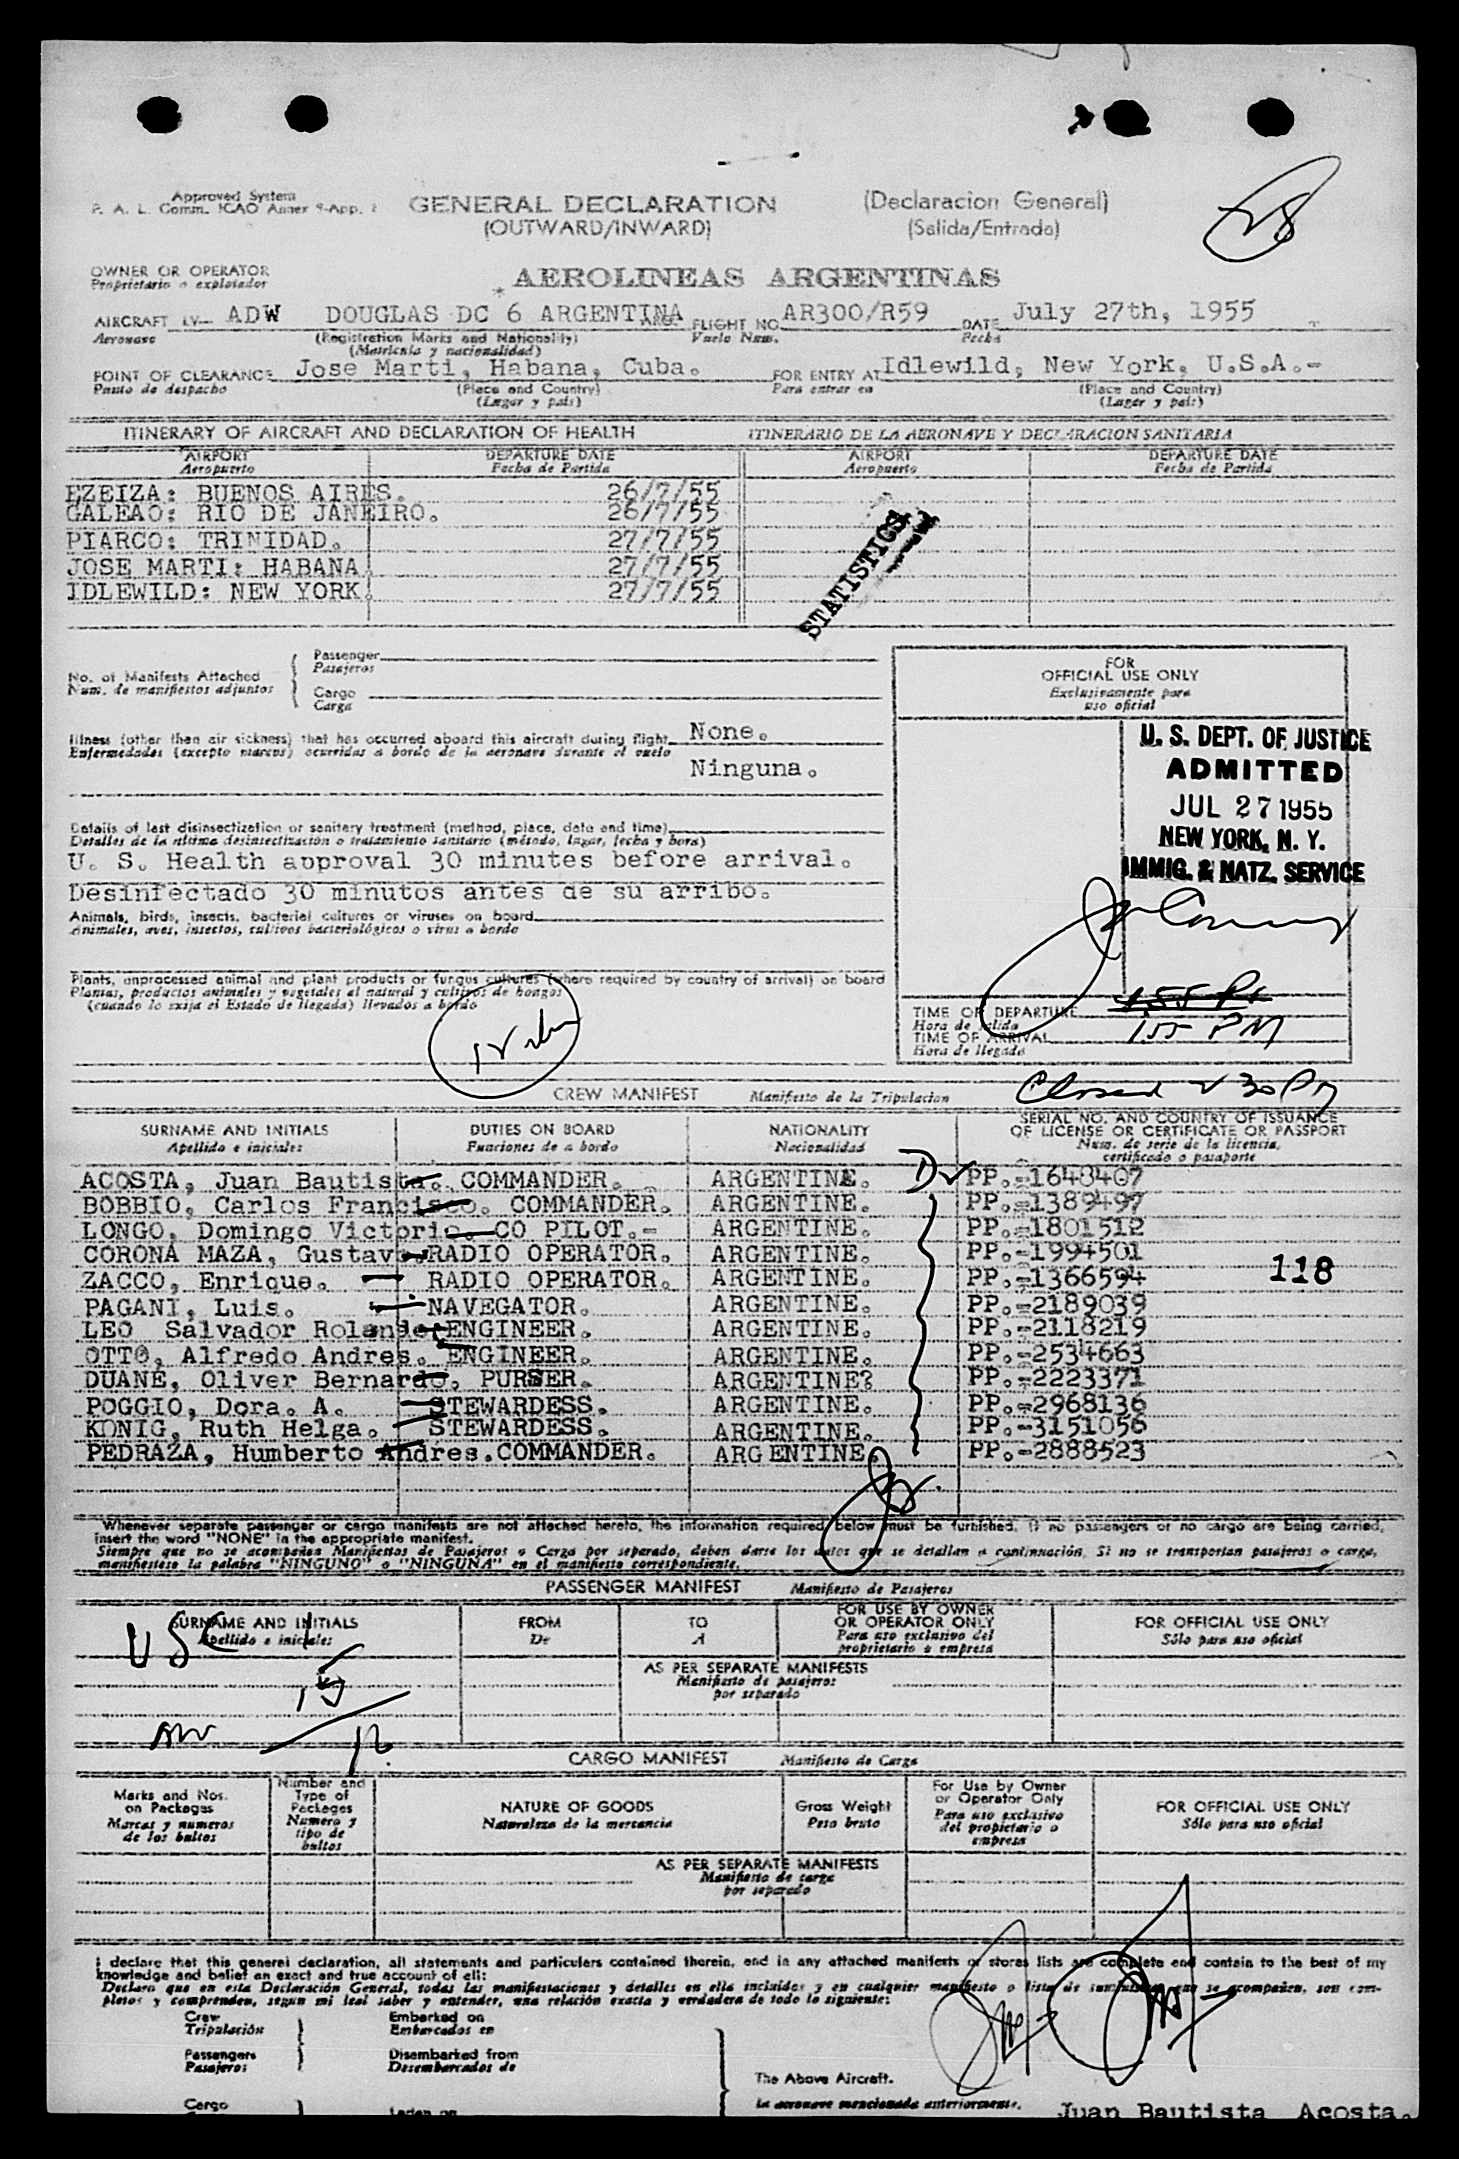 Approved System
F. A. L. Comm. ICAO Annex 9-App. 1
GENERAL DECLARATION
(Declaracion General)
(OUTWARD/INWARD)
(Salida/Entrada)
28
OWNER OR OPERATOR
Propietario o explotador
AEROLINEAS ARGENTINAS
AIRCRAFT LV- ADW DOUGLAS DC 6 ARGENTINA FLIGHT NO AR300/R59 DATE July 27th, 1955
Aeronave (Registration Marks and Nationality) Vuelo Num. Fecha
(Matricula y nacionalidad)
POINT OF CLEARANCE Jose Marti, Habana, Cuba. FOR ENTRY AT Idlewild, New York, U.S.A.-
Punto de despacho (Place and Country) Para entrar en (Place and Country)
(Lugar y país) (Lugar y país)
ITINERARY OF AIRCRAFT AND DECLARATION OF HEALTH ITINERARIO DE LA AERONAVE Y DECLARACION SANITARIA
AIRPORT DEPARTURE DATE AIRPORT DEPARTURE DATE
Aeropuerto Fecha de Partida Aeropuerto Fecha de Partida
EZEIZA: BUENOS AIRES. 26/7/55
GALEAO: RIO DE JANEIRO. 26/7/55
PIARCO: TRINIDAD. 27/7/55
JOSE MARTI: HABANA 27/7/55
IDLEWILD: NEW YORK. 27/7/55
STATISTICS
No. of Manifests Attached
Num. de manifiestos adjuntos
Passenger
Pasajeros
Cargo
Carga
FOR
OFFICIAL USE ONLY
Exclusivamente para
uso oficial
Illness (other than air sickness) that has occurred aboard this aircraft during flight None.
Enfermedades (excepto mareos) ocurridas a bordo de la aeronave durante el vuelo
Ninguna.
U. S. DEPT. OF JUSTICE
ADMITTED
JUL 27 1955
NEW YORK, N. Y.
IMMIG. & NATZ. SERVICE
Details of last disinsectization or sanitary treatment (method, place, date and time)
Detalles de la última desinsectización o tratamiento sanitario (método, lugar, fecha y hora)
U. S. Health approval 30 minutes before arrival.
Desinfectado 30 minutos antes de su arribo.
Animals, birds, insects, bacterial cultures or viruses on board
Animales, aves, insectos, cultivos bacteriológicos o virus a bordo
Plants, unprocessed animal and plant products or fungus cultures (where required by country of arrival) on board
Plantas, productos animales y vegetales al natural y cultivos de hongos
(cuando lo exija el Estado de llegada) llevados a bordo
TIME OF DEPARTURE
Hora de salida
TIME OF ARRIVAL 155 PM
Hora de llegada
Closed 2 30 PM
CREW MANIFEST Manifiesto de la Tripulacion
SURNAME AND INITIALS DUTIES ON BOARD NATIONALITY SERIAL NO. AND COUNTRY OF ISSUANCE
OF LICENSE OR CERTIFICATE OR PASSPORT
Apellido e iniciales Funciones de a bordo Nacionalidad Num. de serie de la licencia,
certificado o pasaporte
ACOSTA, Juan Bautista. COMMANDER. ARGENTINE. D PP.-1648407
BOBBIO, Carlos Francisco. COMMANDER. ARGENTINE. PP.-1389497
LONGO, Domingo Victorio. CO PILOT.- ARGENTINE. PP.-1801512
CORONA MAZA, Gustavo. RADIO OPERATOR. ARGENTINE. PP.-1994501
ZACCO, Enrique. RADIO OPERATOR. ARGENTINE. PP.-1366594
118
PAGANI, Luis. NAVEGATOR. ARGENTINE. PP.-2189039
LEO Salvador Rolando. ENGINEER. ARGENTINE. PP.-2118219
OTTO, Alfredo Andres. ENGINEER. ARGENTINE. PP.-2534663
DUANE, Oliver Bernardo. PURSER. ARGENTINE? PP.-2223371
POGGIO, Dora. A. STEWARDESS. ARGENTINE. PP.-2968136
KONIG, Ruth Helga. STEWARDESS. ARGENTINE. PP.-3151056
PEDRAZA, Humberto Andres. COMMANDER. ARGENTINE. PP.-2888523
Whenever separate passenger or cargo manifests are not attached hereto, the information required below must be furnished. If no passengers or no cargo are being carried,
insert the word "NONE" in the appropriate manifest.
Siempre que no se acompañen Manifiestos de Pasajeros o Carga por separado, deben darse los datos que se detallan a continuación. Si no se transportan pasajeros o carga,
manifiéstese la palabra "NINGUNO" o "NINGUNA" en el manifiesto correspondiente.
PASSENGER MANIFEST Manifiesto de Pasajeros
SURNAME AND INITIALS FROM TO FOR USE BY OWNER
OR OPERATOR ONLY FOR OFFICIAL USE ONLY
Apellido e iniciales De A Para uso exclusivo del
propietario o empresa Sólo para uso oficial
USC 1
15
16
AS PER SEPARATE MANIFESTS
Manifiesto de pasajeros
por separado
CARGO MANIFEST Manifiesto de Carga
Marks and Nos.
on Packages
Marcas y numeros
de los bultos
Number and
Type of
Packages
Numero y
tipo de
bultos
NATURE OF GOODS
Naturaleza de la mercancia
Gross Weight
Peso bruto
For Use by Owner
or Operator Only
Para uso exclusivo
del propietario o
empresa
FOR OFFICIAL USE ONLY
Sólo para uso oficial
AS PER SEPARATE MANIFESTS
Manifiesto de carga
por separado
I declare that this general declaration, all statements and particulars contained therein, and in any attached manifests or stores lists are complete and contain to the best of my
knowledge and belief an exact and true account of all:
Declaro que en esta Declaración General, todas las manifestaciones y detalles en ella incluidos y en cualquier manifiesto o lista de suministros que se acompañen, son com-
pletos y comprenden, segun mi leal saber y entender, una relación exacta y verdadera de todo lo siguiente:
Crew Embarked on
Tripulación Embarcados en
Passengers Disembarked from
Pasajeros Desembarcados de
The Above Aircraft.
La aeronave mencionada anteriormente.
Cargo Laden on
Juan Bautista Acosta.